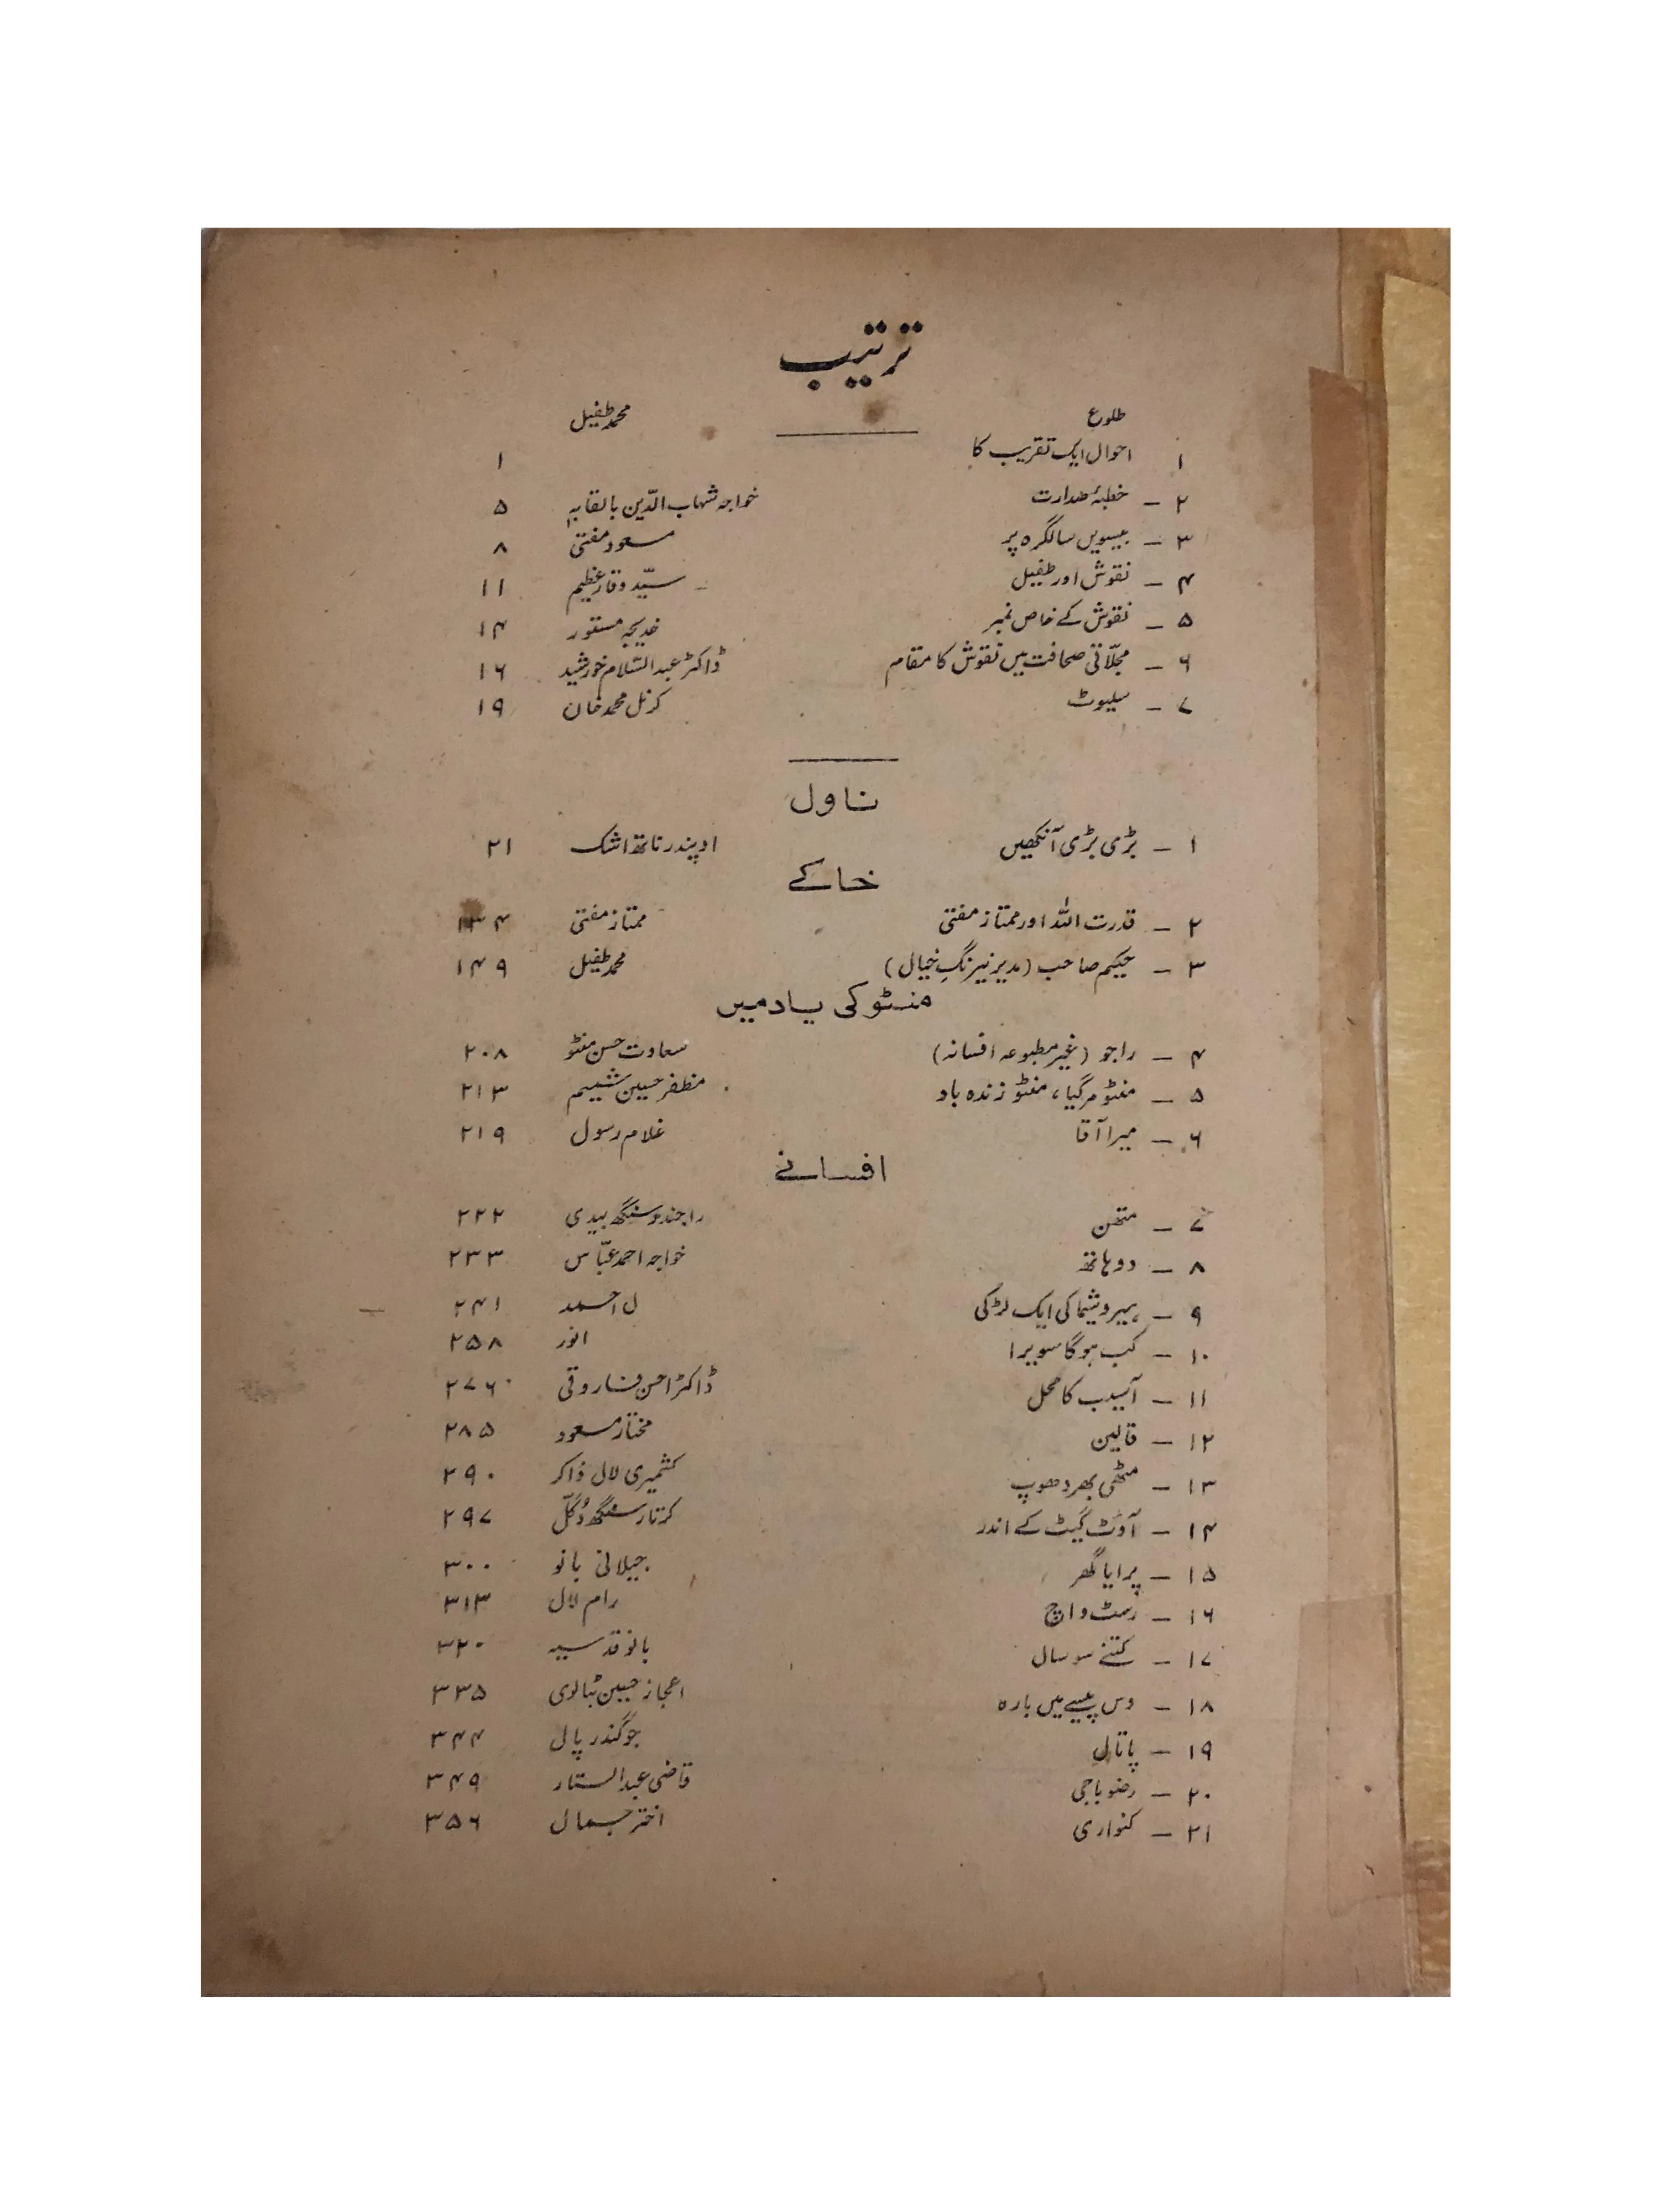 ترتیب
طلوع محمد طفیل
۱ احوال ایک تقریب کا ۱
۲ – خطبۂ صدارت خواجہ شہاب الدّین بالقابہٖ ۵
۳ – بیسویں سالگرہ پر مسعود مفتی ۸
۴ – نقوش اور طفیل سیّد وقار عظیم ۱۱
۵ – نقوش کے خاص نمبر خدیجہ مستور ۱۴
۶ – مجلّاتی صحافت میں نقوش کا مقام ڈاکٹر عبدالسّلام خورشید ۱۶
۷ – سلیوٹ کرنل محمد خان ۱۹
ناول
۱ – بڑی بڑی آنکھیں اوپندر ناتھ اشک ۲۱
خاکے
۲ – قدرت اللہ اور ممتاز مفتی ممتاز مفتی ۱۳۴
۳ – حکیم صاحب (مدیر نیرنگِ خیال) محمد طفیل ۱۴۹
منٹو کی یاد میں
۴ – راجو (غیر مطبوعہ افسانہ) سعادت حسن منٹو ۲۰۸
۵ – منٹو مر گیا، منٹو زندہ باد مظفر حسین شمیم ۲۱۳
۶ – میرا آقا غلام رسول ۲۱۹
افسانے
۷ – متھن راجندر سنگھ بیدی ۲۲۲
۸ – دو ہاتھ خواجہ احمد عبّاس ۲۳۳
۹ – ہیروشیما کی ایک لڑکی ل احمد ۲۴۱
۱۰ – کب ہو گا سویرا انور ۲۵۸
۱۱ – آسیب کا محل ڈاکٹر احسن فاروقی ۲۷۶
۱۲ – قالین مختار مسعود ۲۸۵
۱۳ – مٹھی بھر دھوپ کشمیری لال ذاکر ۲۹۰
۱۴ – آوٹ گیٹ کے اندر کرتار سنگھ دُگلّ ۲۹۷
۱۵ – پرایا گھر جیلانی بانو ۳۰۰
۱۶ – رسٹ واچ رام لال ۳۱۳
۱۷ – کتنے سو سال بانو قدسیہ ۳۲۰
۱۸ – دس پیسے میں بارہ اعجاز حسین بٹالوی ۳۳۵
۱۹ – پاتال جوگندر پال ۳۴۴
۲۰ – رضو باجی قاضی عبدالستار ۳۴۹
۲۱ – کنواری اختر جمال ۳۵۶